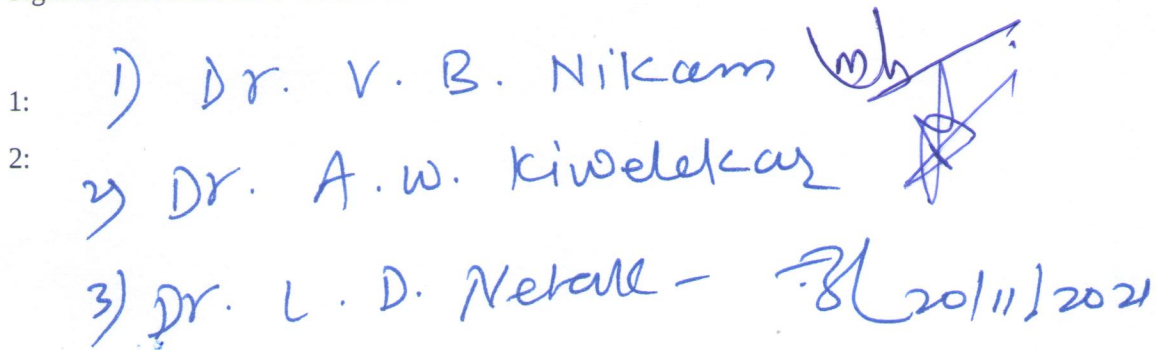 1: 1) Dr. V. B. Nikam
2: 2) Dr. A. W. Kiwelekar
3) Dr. L. D. Netak - 20/11/2021